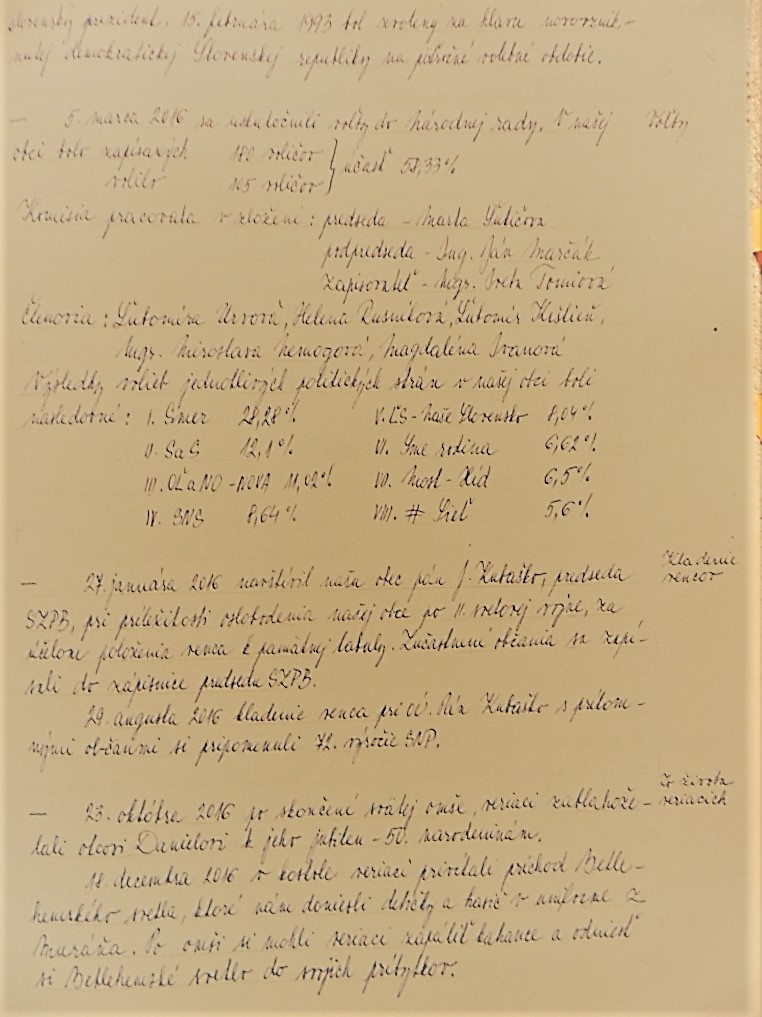 slovenský prezident. 15. februára 1993 bol zvolený za hlavu novovznik-
nutej demokratickej Slovenskej republiky na päťročné volebné obdobie.
— 5. marca 2016 sa uskutočnili voľby do Národnej rady. V našej
Voľby
obci bolo zapísaných 180 voličov
volilo 105 voličov } účasť 58,33%
Komisia pracovala v zložení: predseda – Marta
podpredseda – Ing. Ján Marčák
zapisovateľ – Mgr. Iveta Tomiová
Členovia: Ľubomíra Urvová, Helena Rusníková, Ľubomír Kišlien,
Mgr. Miroslava Nemogová, Magdaléna Ivanová
Výsledky volieb jednotlivých politických strán v našej obci boli
následovné: I. Smer 28,28% V. ĽS-Naše Slovensko 8,04%
II. SaS 12,1% VI. Sme rodina 6,62%
III. OĽaNO-NOVA 11,02% VII. Most-Híd 6,5%
IV. SNS 8,64% VIII. # Sieť 5,6%
Kladenie
vencov
— 27. januára 2016 navštívil našu obec pán J. Kubaško, predseda
SZPB, pri príležitosti oslobodenia našej obce po II. svetovej vojne, za
účelom položenia venca k pamätnej tabuly. Zúčastnení občania sa zapí-
sali do zápisnice predsedu SZPB.
29. augusta 2016 kladenie venca pri OÚ. Pán Kubaško s prítom-
nými občanmi si pripomenuli 72. výročie SNP.
Zo života
veriacich
— 23. októbra 2016 po skončení svätej omše, veriaci zablahože-
lali otcovi Danielovi k jeho jubileu – 50. narodeninám.
18. decembra 2016 v kostole veriaci privítali príchod Betle-
hemského svetla, ktoré nám doniesli detičky a hasič v uniforme z
Muráňa. Po omši si mohli veriaci zapáliť kahance a odniesť
si Betlehemské svetlo do svojich príbytkov.